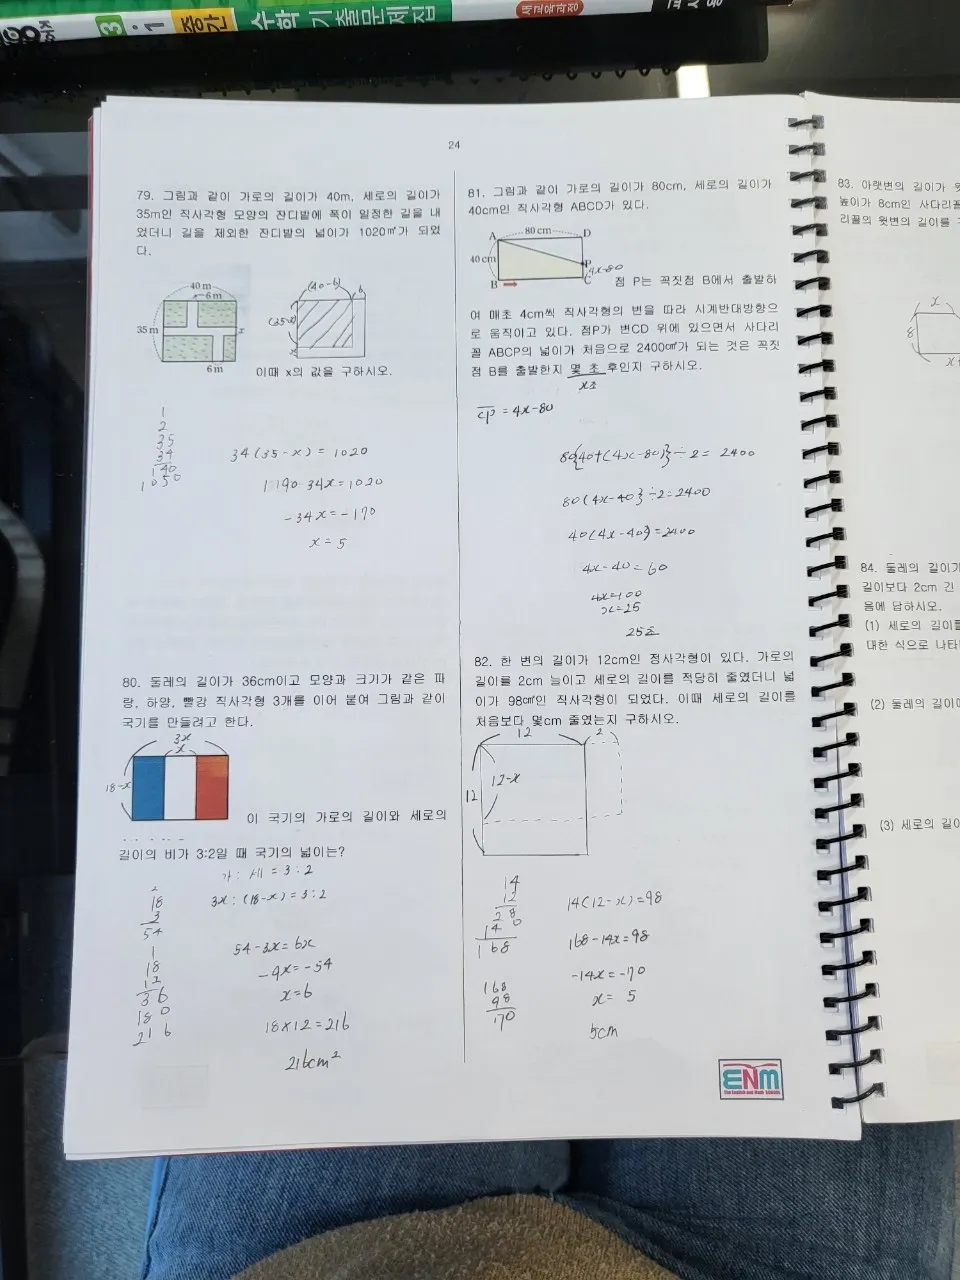 3·1
중간
수학 기출문제집
새교육과정
24
79. 그림과 같이 가로의 길이가 40m, 세로의 길이가
35m인 직사각형 모양의 잔디밭에 폭이 일정한 길을 내
었더니 길을 제외한 잔디밭의 넓이가 1020㎡가 되었
다.
40m
6m
35m
x
6m
(40-6)
6
(35-x)
x
이때 x의 값을 구하시오.
1
2
35
34
140
1050
34(35-x)=1020
1190-34x=1020
-34x=-170
x=5
80. 둘레의 길이가 36cm이고 모양과 크기가 같은 파
랑, 하양, 빨강 직사각형 3개를 이어 붙여 그림과 같이
국기를 만들려고 한다.
3x
x
18-x
이 국기의 가로의 길이와 세로의
길이의 비가 3:2일 때 국기의 넓이는?
가:세=3:2
3x:(18-x)=3:2
2
18
3
54
54-3x=6x
-9x=-54
x=6
1
18
12
36
18 0
216
18×12=216
216cm²
81. 그림과 같이 가로의 길이가 80cm, 세로의 길이가
40cm인 직사각형 ABCD가 있다.
A
80cm
D
40cm
P
4x-80
B
C
점 P는 꼭짓점 B에서 출발하
여 매초 4cm씩 직사각형의 변을 따라 시계반대방향으
로 움직이고 있다. 점P가 변CD 위에 있으면서 사다리
꼴 ABCP의 넓이가 처음으로 2400㎠가 되는 것은 꼭짓
점 B를 출발한지 몇 초 후인지 구하시오.
x초
CP=4x-80
80{40+(4x-80)}÷2=2400
80(4x-40}÷2=2400
40(4x-40)=2400
4x-40=60
4x=100
x=25
25초
82. 한 변의 길이가 12cm인 정사각형이 있다. 가로의
길이를 2cm 늘이고 세로의 길이를 적당히 줄였더니 넓
이가 98㎠인 직사각형이 되었다. 이때 세로의 길이를
처음보다 몇cm 줄였는지 구하시오.
12
2
12-x
12
14
12
28
14 0
168
14(12-x)=98
168-14x=98
-14x=-70
x= 5
168
98
170
5cm
ENM
83. 아랫변의 길이가
높이가 8cm인 사다리꼴
리꼴의 윗변의 길이를
x
8
84. 둘레의 길이가
길이보다 2cm 긴
음에 답하시오.
(1) 세로의 길이를
대한 식으로 나타
(2) 둘레의 길이
(3) 세로의 길이